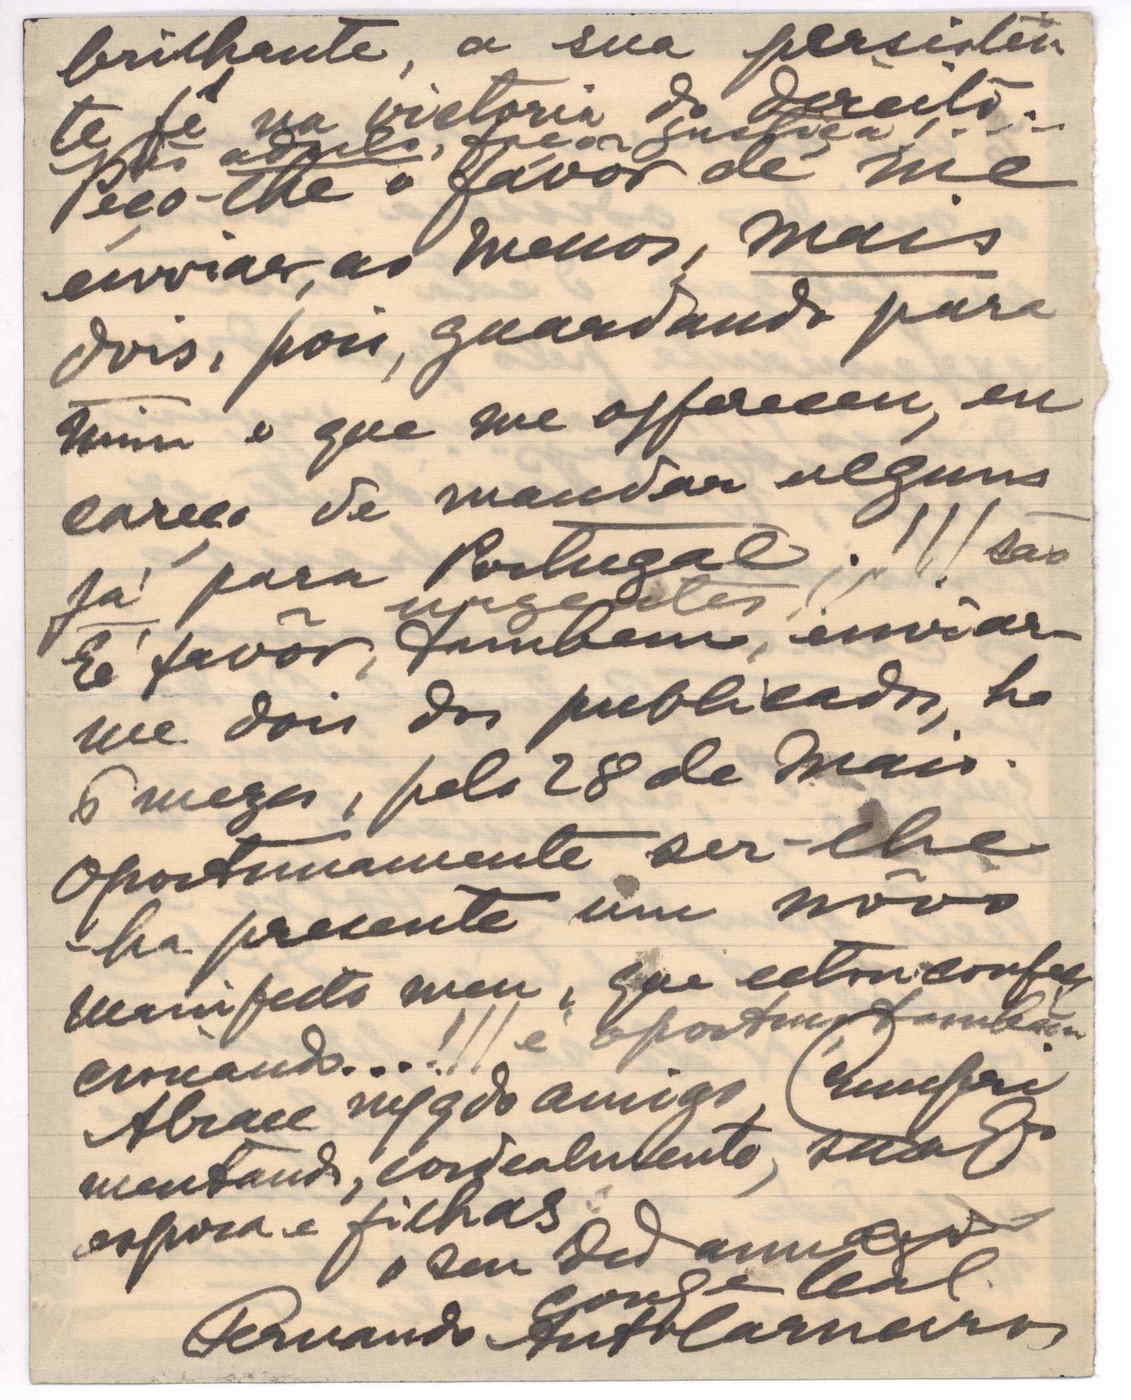 brilhante, a sua persisten
te fé na victoria do direito.
Peço-lhe o favôr de me
enviar, ao menos, mais
dois, pois, guardando para
mim o que me offereceu, en
careço de mandar alguns
já para Portugal. !!! são
urgentes !!!
É favôr, tambem, enviar-
me dois dos publicados, ha
6 mezes, pelo 28 de Maio.
Oportunamente ser-lhe
-ha presente um nôvo
manifesto meu, que estou confec
cionando...!!! é oportuno tambem
Abrace mº gdo amigo, Cumpri
mentando, cordealmente, sua Ex
esposa e filhas
o seu Ded am
conf e leal
Fernando Antº Carneiro